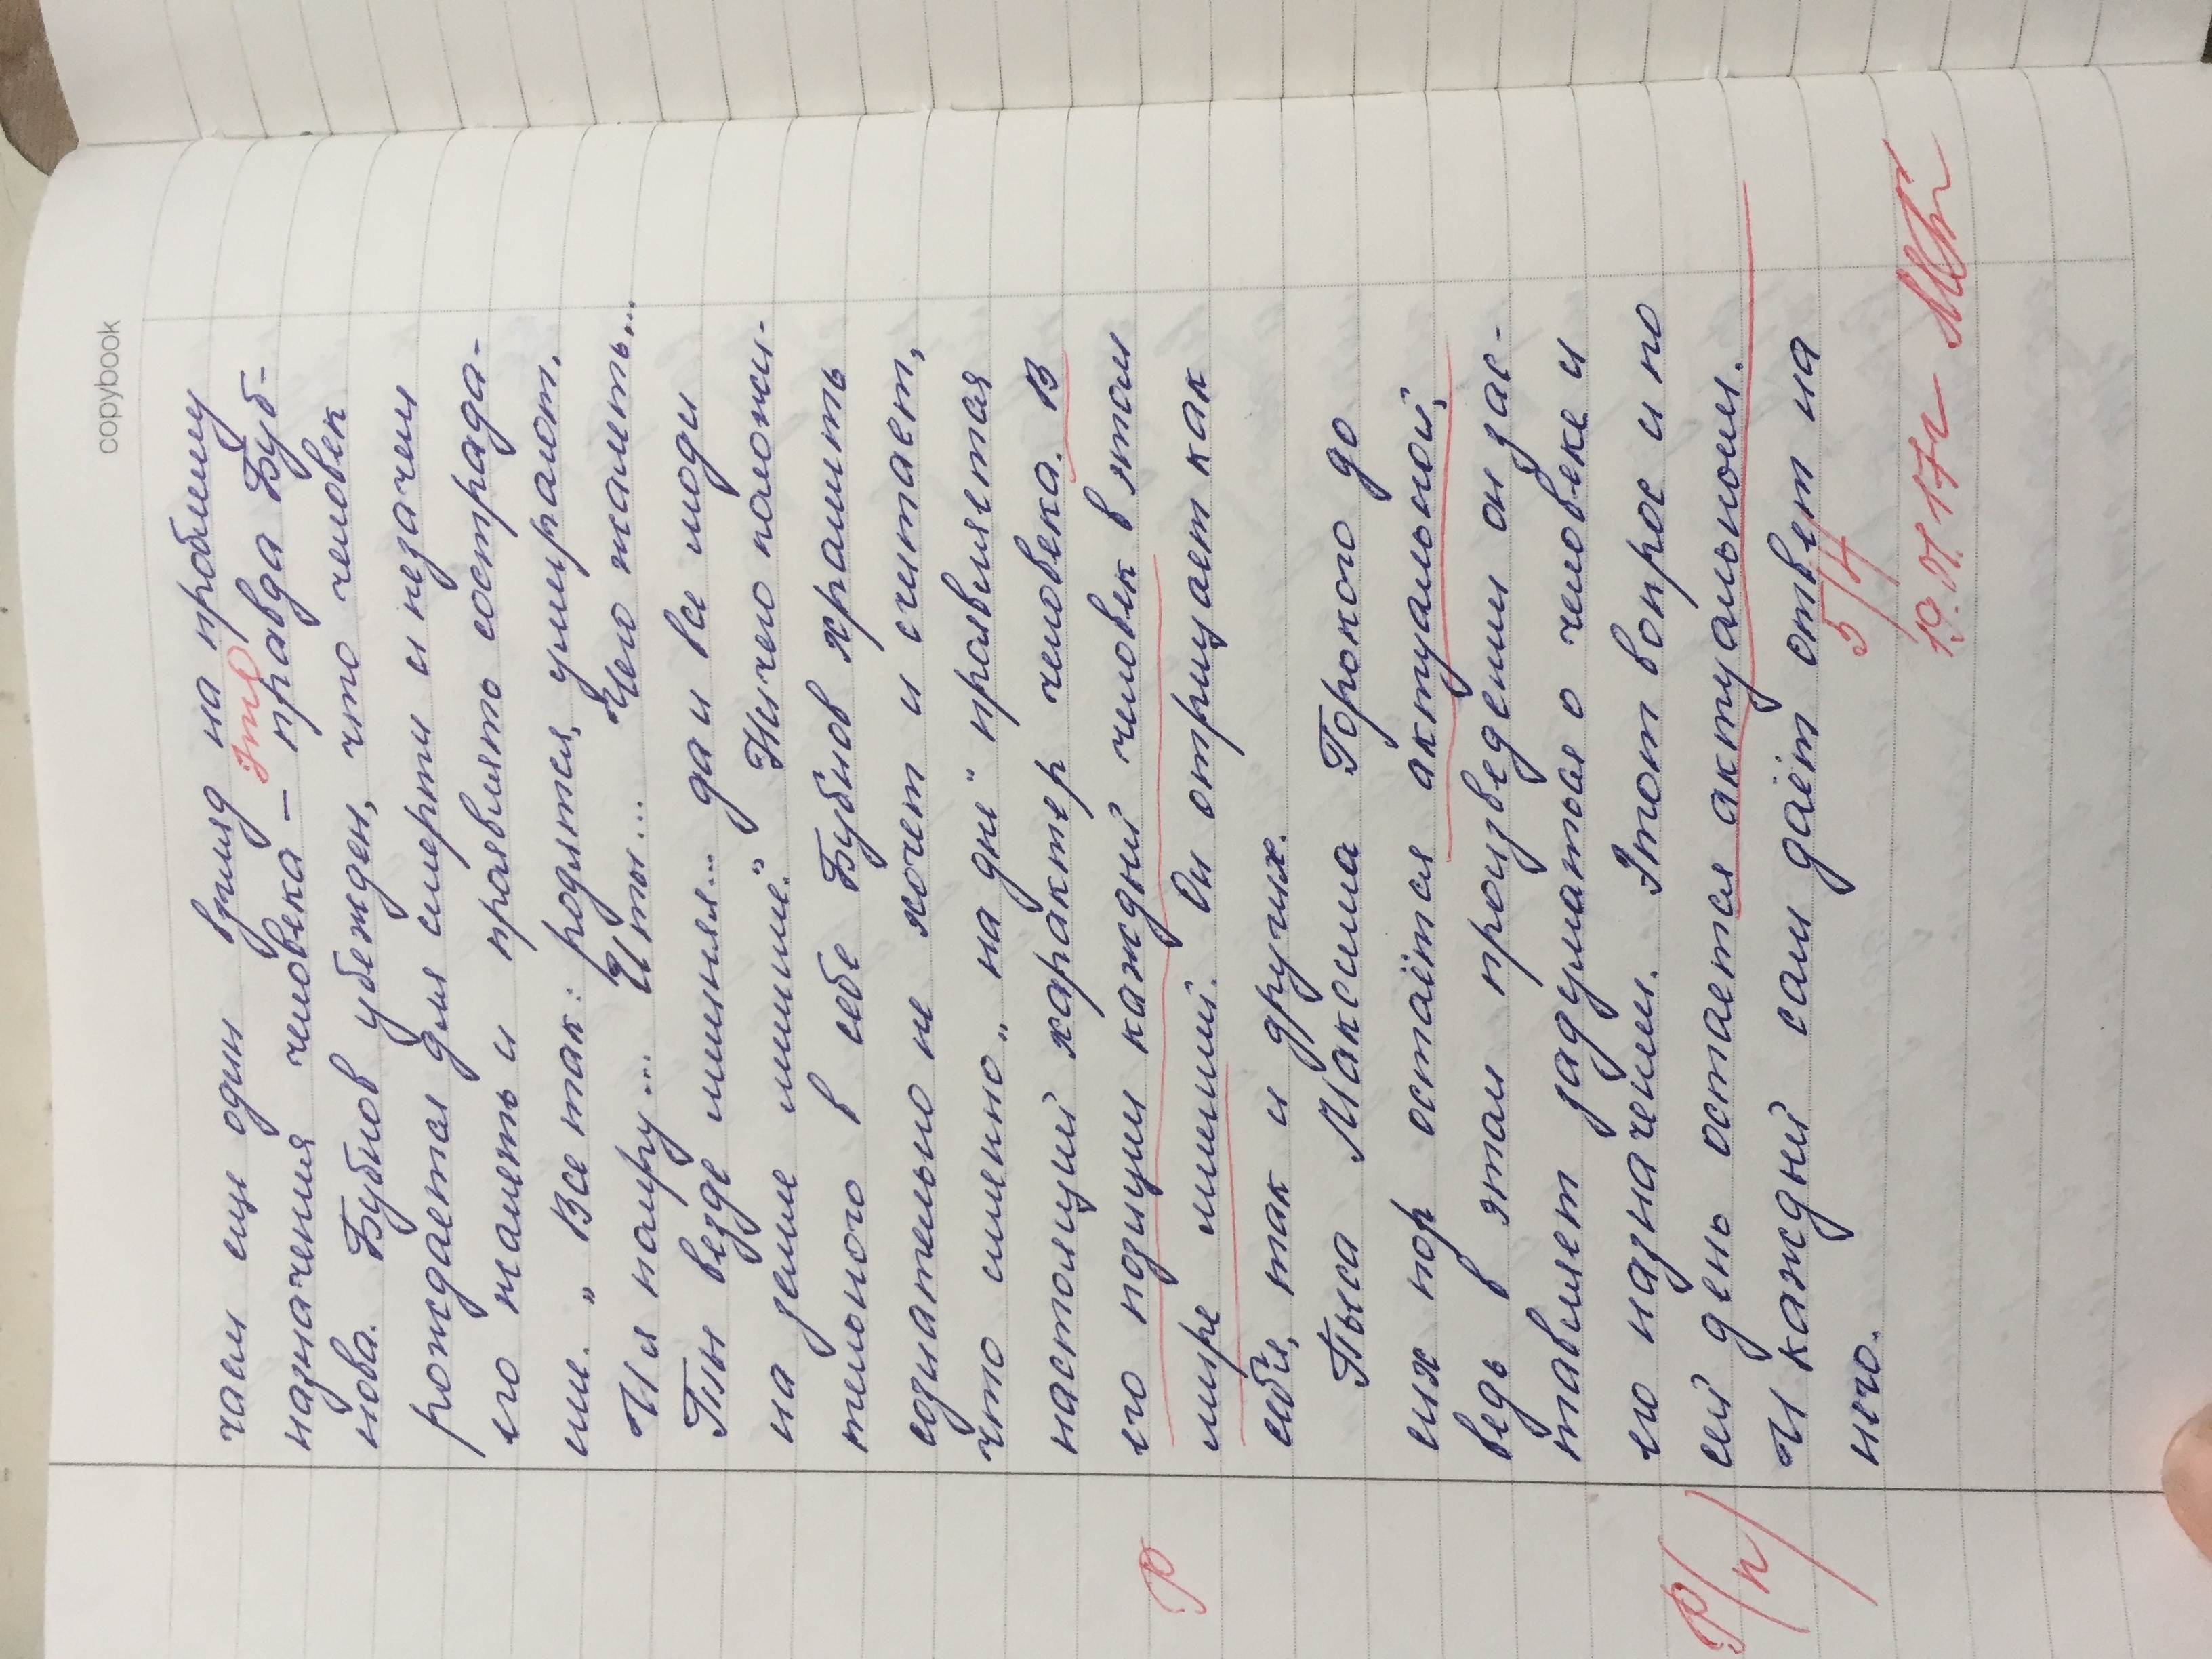 copybook
чаем еще один взгляд на проблему
это
назначения человека – правда Буб-
нова. Бубнов убежден, что человек
рождается для смерти и незачем
его жалеть и проявлять сострада-
ние. „ Все так: родятся, умирают.
И я помру... И ты... Чего жалеть...
Ты везде лишняя... да и все люди
на земле лишние“. Ничего положи-
тельного в себе Бубнов хранить
сознательно не хочет и считает,
что именно „ на дне“ проявляется
настоящий характер человека. В
его позиции каждый человек в этом
Р
мире лишний. Он отрицает как
себя, так и других.
Пьеса Максима Горького до
сих пор остаётся актуальной,
ведь в этом произведении он зас-
тавляет задуматься о человеке и
его назначении. Этот вопрос и по
Р/п/
сей день остается актуальным.
И каждый сам даёт ответ на
него.
5/4
19.01.17г